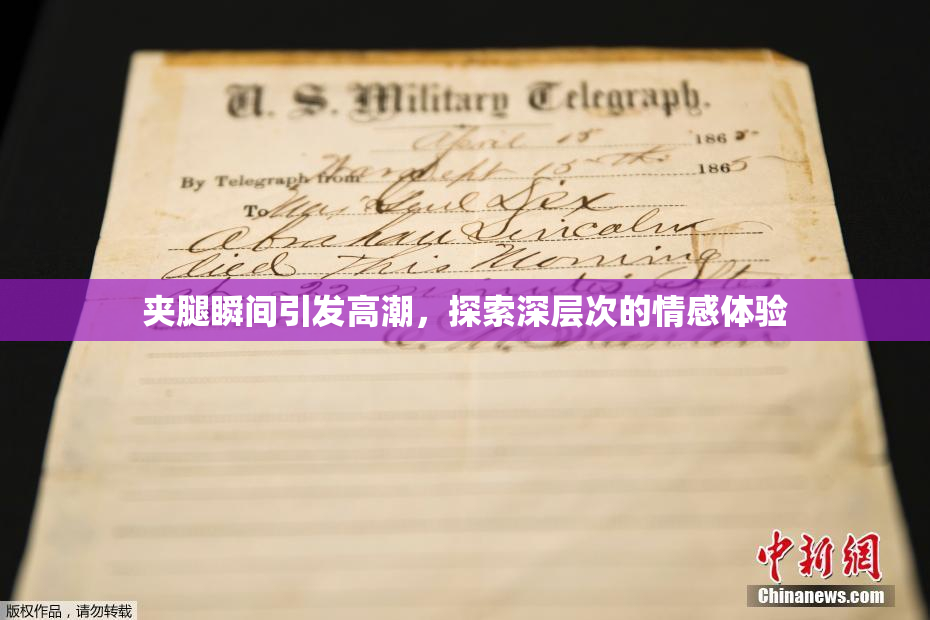 U. S. Military Telegraph.
April 15 1865
By Telegraph from War Dept 15th 1865
To Maj Genl Dix
Abraham Lincoln
died This Morning
22 minutes after
夹腿瞬间引发高潮，探索深层次的情感体验
E. M. Stanton
中新网
Chinanews.com
版权作品，请勿转载